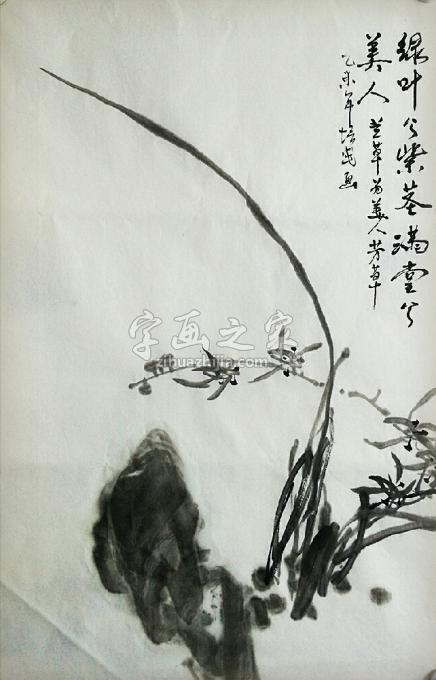 绿叶兮紫茎满堂兮
美人 兰草为美人芳草
乙未年培画
字画之家
zihuazhijia.com